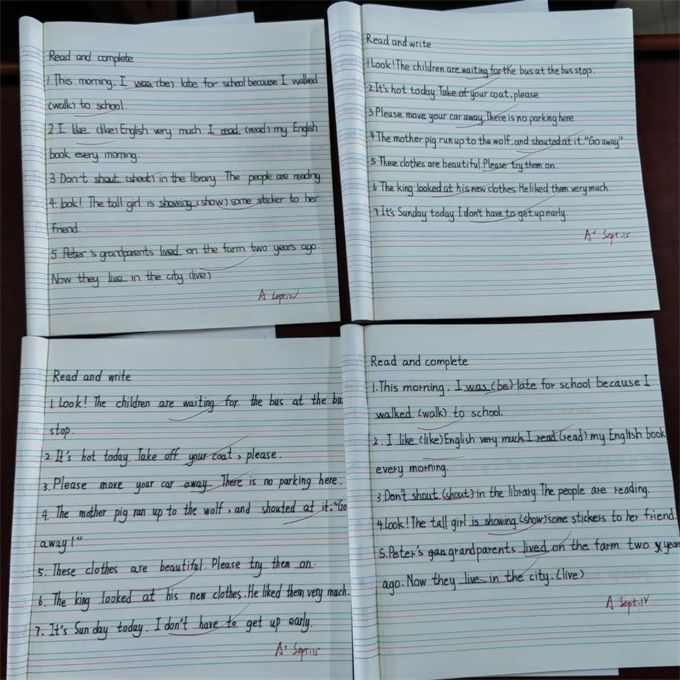 Read and complete
1. This morning, I was (be) late for school because I walked
(walk) to school.
2. I like (like) English very much. I read (read) my English
book every morning.
3 Don't shout (shout) in the library. The people are reading.
4. look! The tall girl is showing (show) some sticker to her
friend.
5 Peter's grandparents lived on the farm two years ago.
Now they live in the city. (live)
A Sept.
Read and write
1. Look! The children are waiting for the bus at the bus stop.
2. It's hot today. Take of your coat, please.
3 Please move your car away. There is no parking here.
4 The mother pig run up to the wolf, and shouted at it. "Go away"
5 These clothes are beautiful. Please try them on.
6 The king looked at his new clothes. He liked them very much.
7. It's Sunday today. I don't have to get up early.
A+ Sept.
Read and write
1. Look! The children are waiting for the bus at the bu
stop.
2. It's hot today. Take off your coat, please.
3. Please move your car away. There is no parking here.
4. The mother pig ran up to the wolf, and shouted at it. "Go
away!"
5. These clothes are beautiful. Please try them on.
6. The king looked at his new clothes. He liked them very much.
7. It's Sunday today. I don't have to get up early.
A+ Sept.
Read and complete
1. This morning, I was (be) late for school because I
walked (walk) to school.
2. I like (like) English very much. I read (read) my English book
every morning.
3 Don't shout (shout) in the library. The people are reading.
4. look! The tall girl is showing (show) some stickers to her friend
5. Peter's grandparents lived on the farm two years
ago. Now they live in the city. (live)
A Sept.